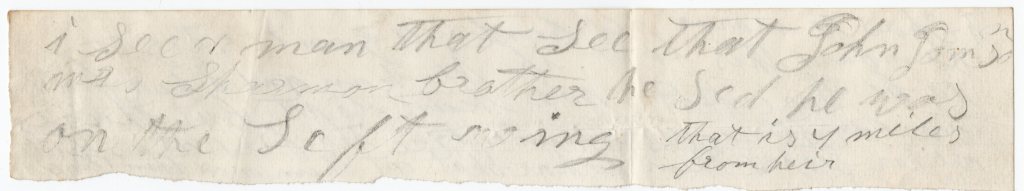 i see a man that see that John
was brother he sed he was
on the left wing that is 4 miles
from heir